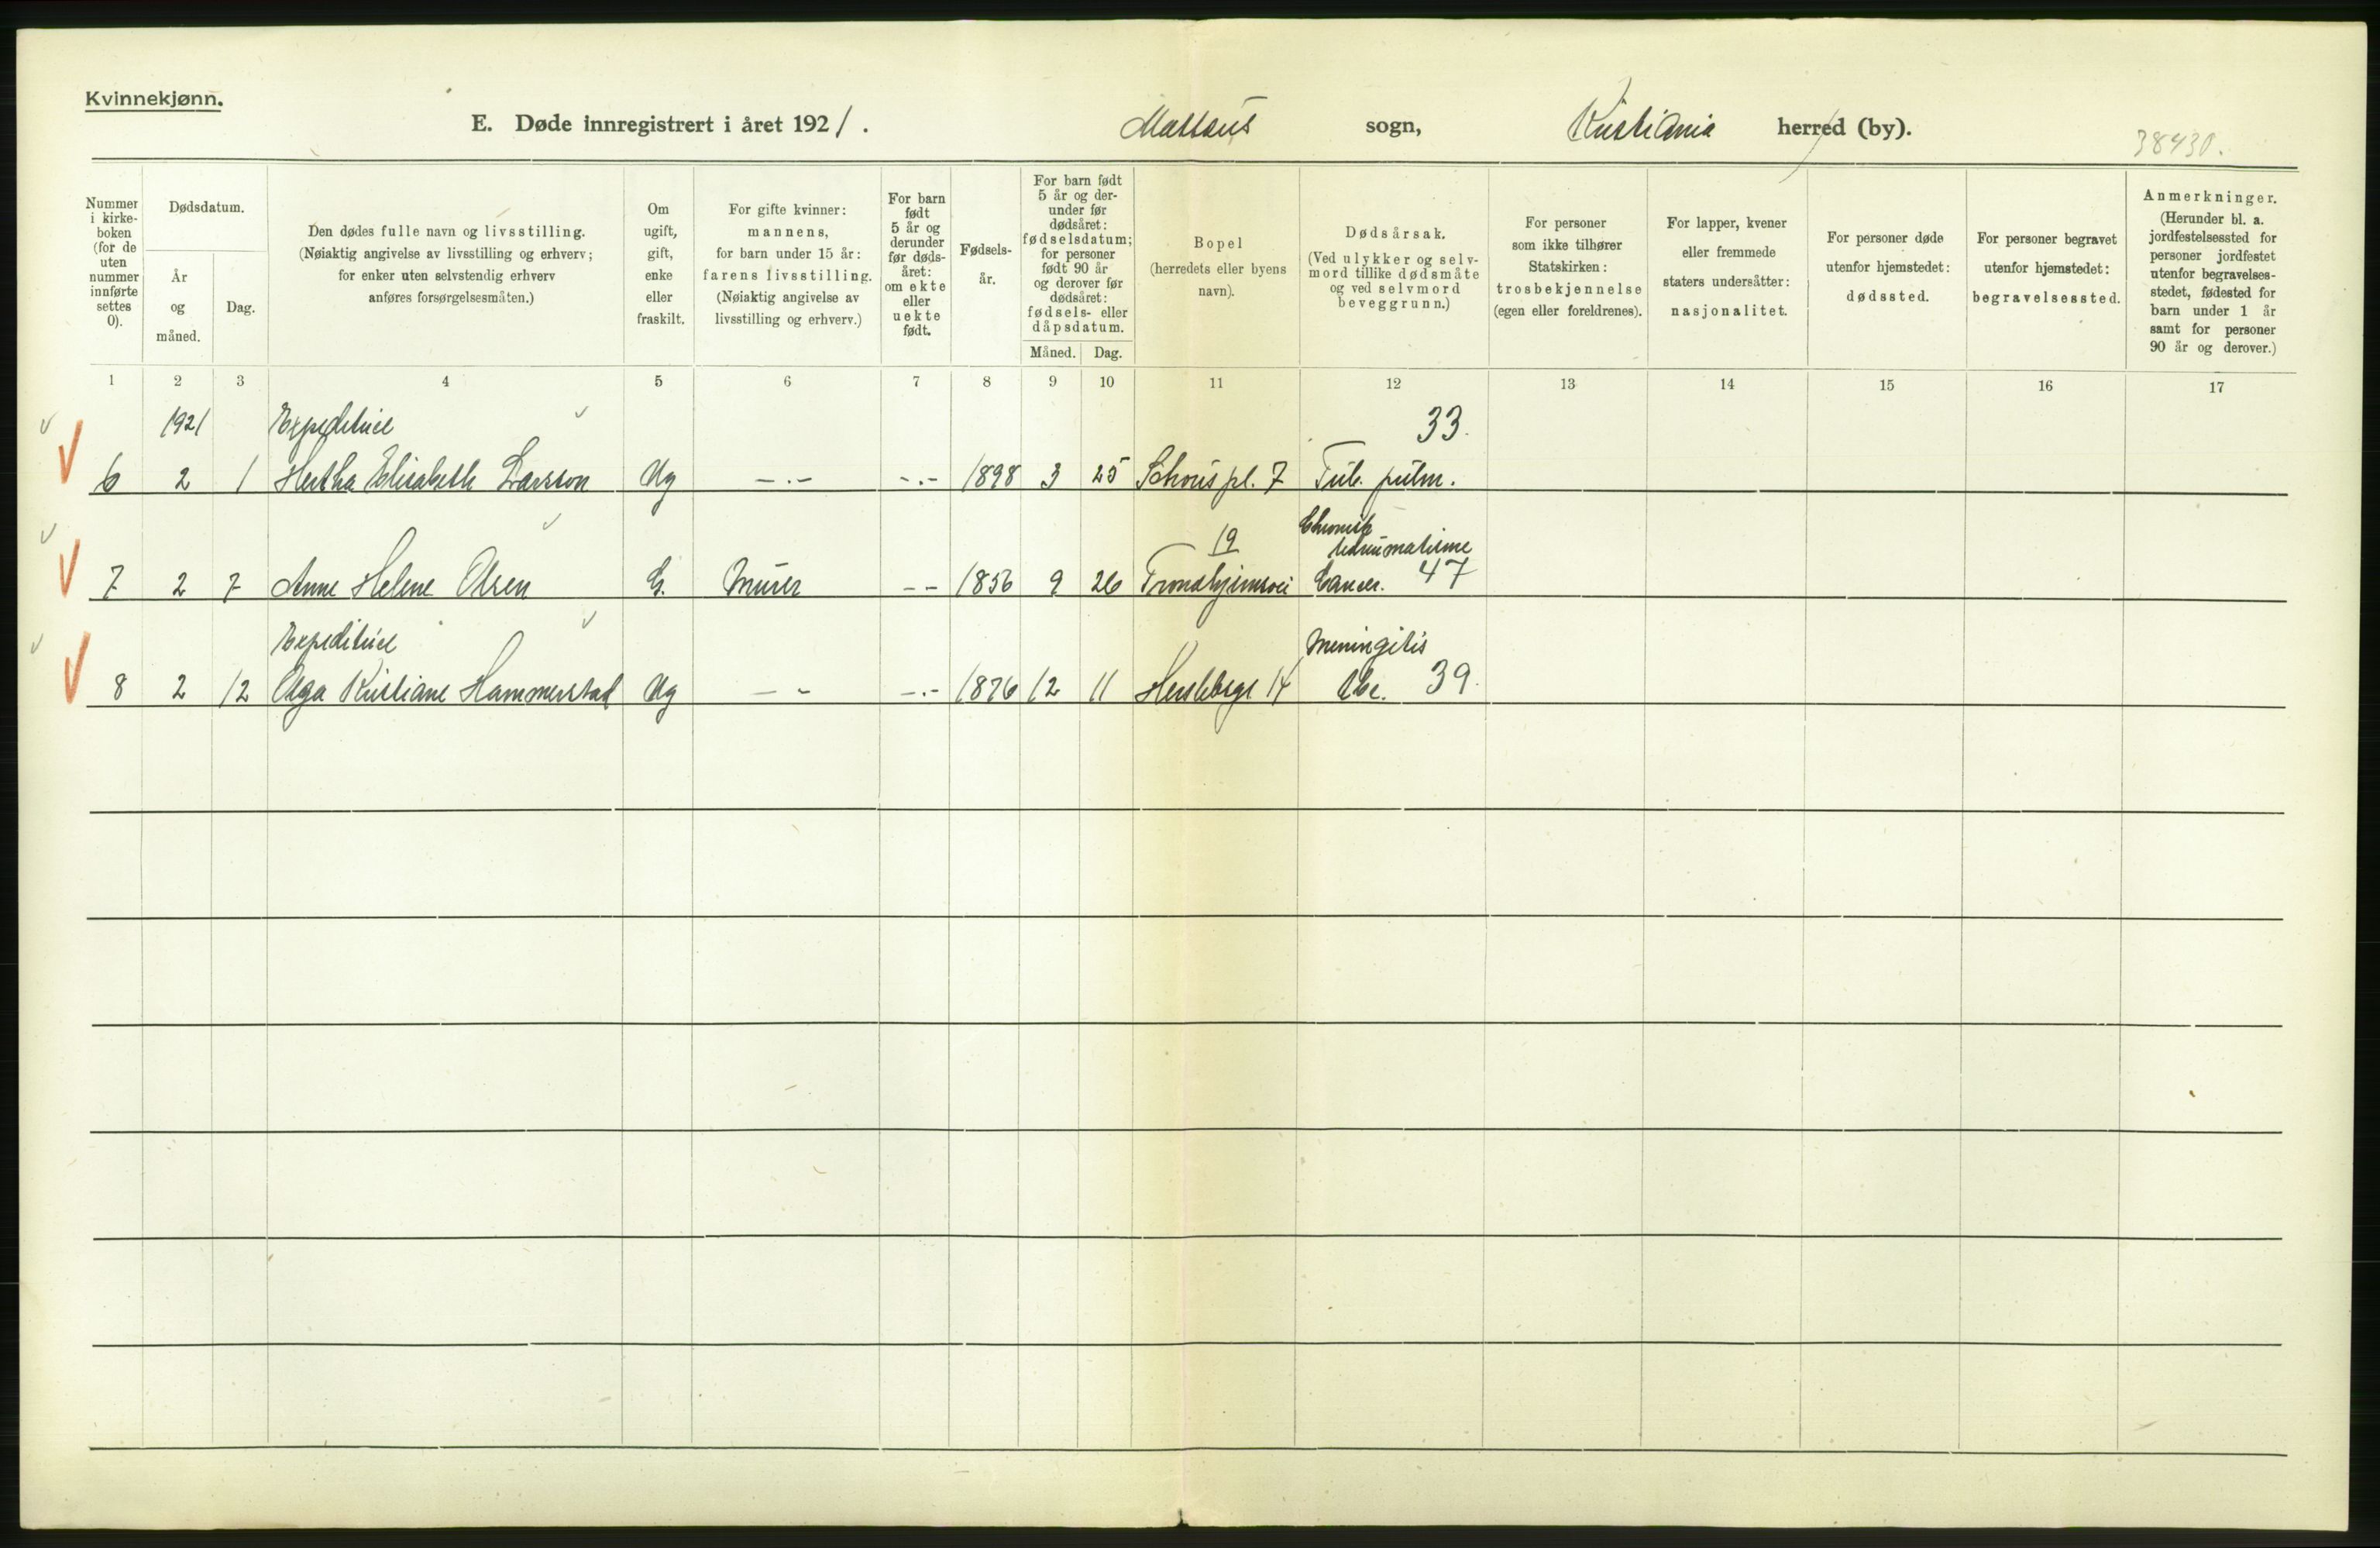 Kvinnekjønn.
E. Døde innregistrert i året 1921.
Mattæus sogn, Kristiania herred (by).
38430.
Nummer i kirke-
boken
(for de
uten
nummer
innførte
settes
0).
Dødsdatum.
År
og
måned.
Dag.
Den dødes fulle navn og livsstilling.
(Nøiaktig angivelse av livsstilling og erhverv;
for enker uten selvstendig erhverv
anføres forsørgelsesmåten.)
Om
ugift,
gift,
enke
eller
fraskilt.
For gifte kvinner:
mannens,
for barn under 15 år:
farens livsstilling.
(Nøiaktig angivelse av
livsstilling og erhverv.)
For barn
født
5 år og
derunder
før døds-
året:
om ekte
eller
uekte
født.
Fødsels-
år.
For barn født
5 år og der-
under før
dødsåret:
fødselsdatum;
for personer
født 90 år
og derover før
dødsåret:
fødsels- eller
dåpsdatum.
Måned. Dag.
Bopel
(herredets eller byens
navn).
Dødsårsak.
(Ved ulykker og selv-
mord tillike dødsmåte
og ved selvmord
beveggrunn.)
For personer
som ikke tilhører
Statskirken:
trosbekjennelse
(egen eller foreldrenes).
For lapper, kvener
eller fremmede
staters undersåtter:
nasjonalitet.
For personer døde
utenfor hjemstedet:
dødssted.
For personer begravet
utenfor hjemstedet:
begravelsessted.
Anmerkninger.
(Herunder bl. a.
jordfestelsessted for
personer jordfestet
utenfor begravelses-
stedet, fødested for
barn under 1 år
samt for personer
90 år og derover.)
1 2 3 4 5 6 7 8 9 10 11 12 13 14 15 16 17
1921 Expeditrice 33.
6 2 1 Hertha Elisabeth Larsson Ug -.- -.- 1898 3 25 Schous pl. 7 Tub. pulm.
19 Chronisk
rheumatisme
7 2 7 Anne Helene Olsen G. Murer -- 1856 9 26 Trondhjemsvei Cancer. 47
Expeditrice Meningitis
8 2 12 Olga Kristiane Hammerstad Ug -- -.- 1876 12 11 Herslebsgt 14 39.